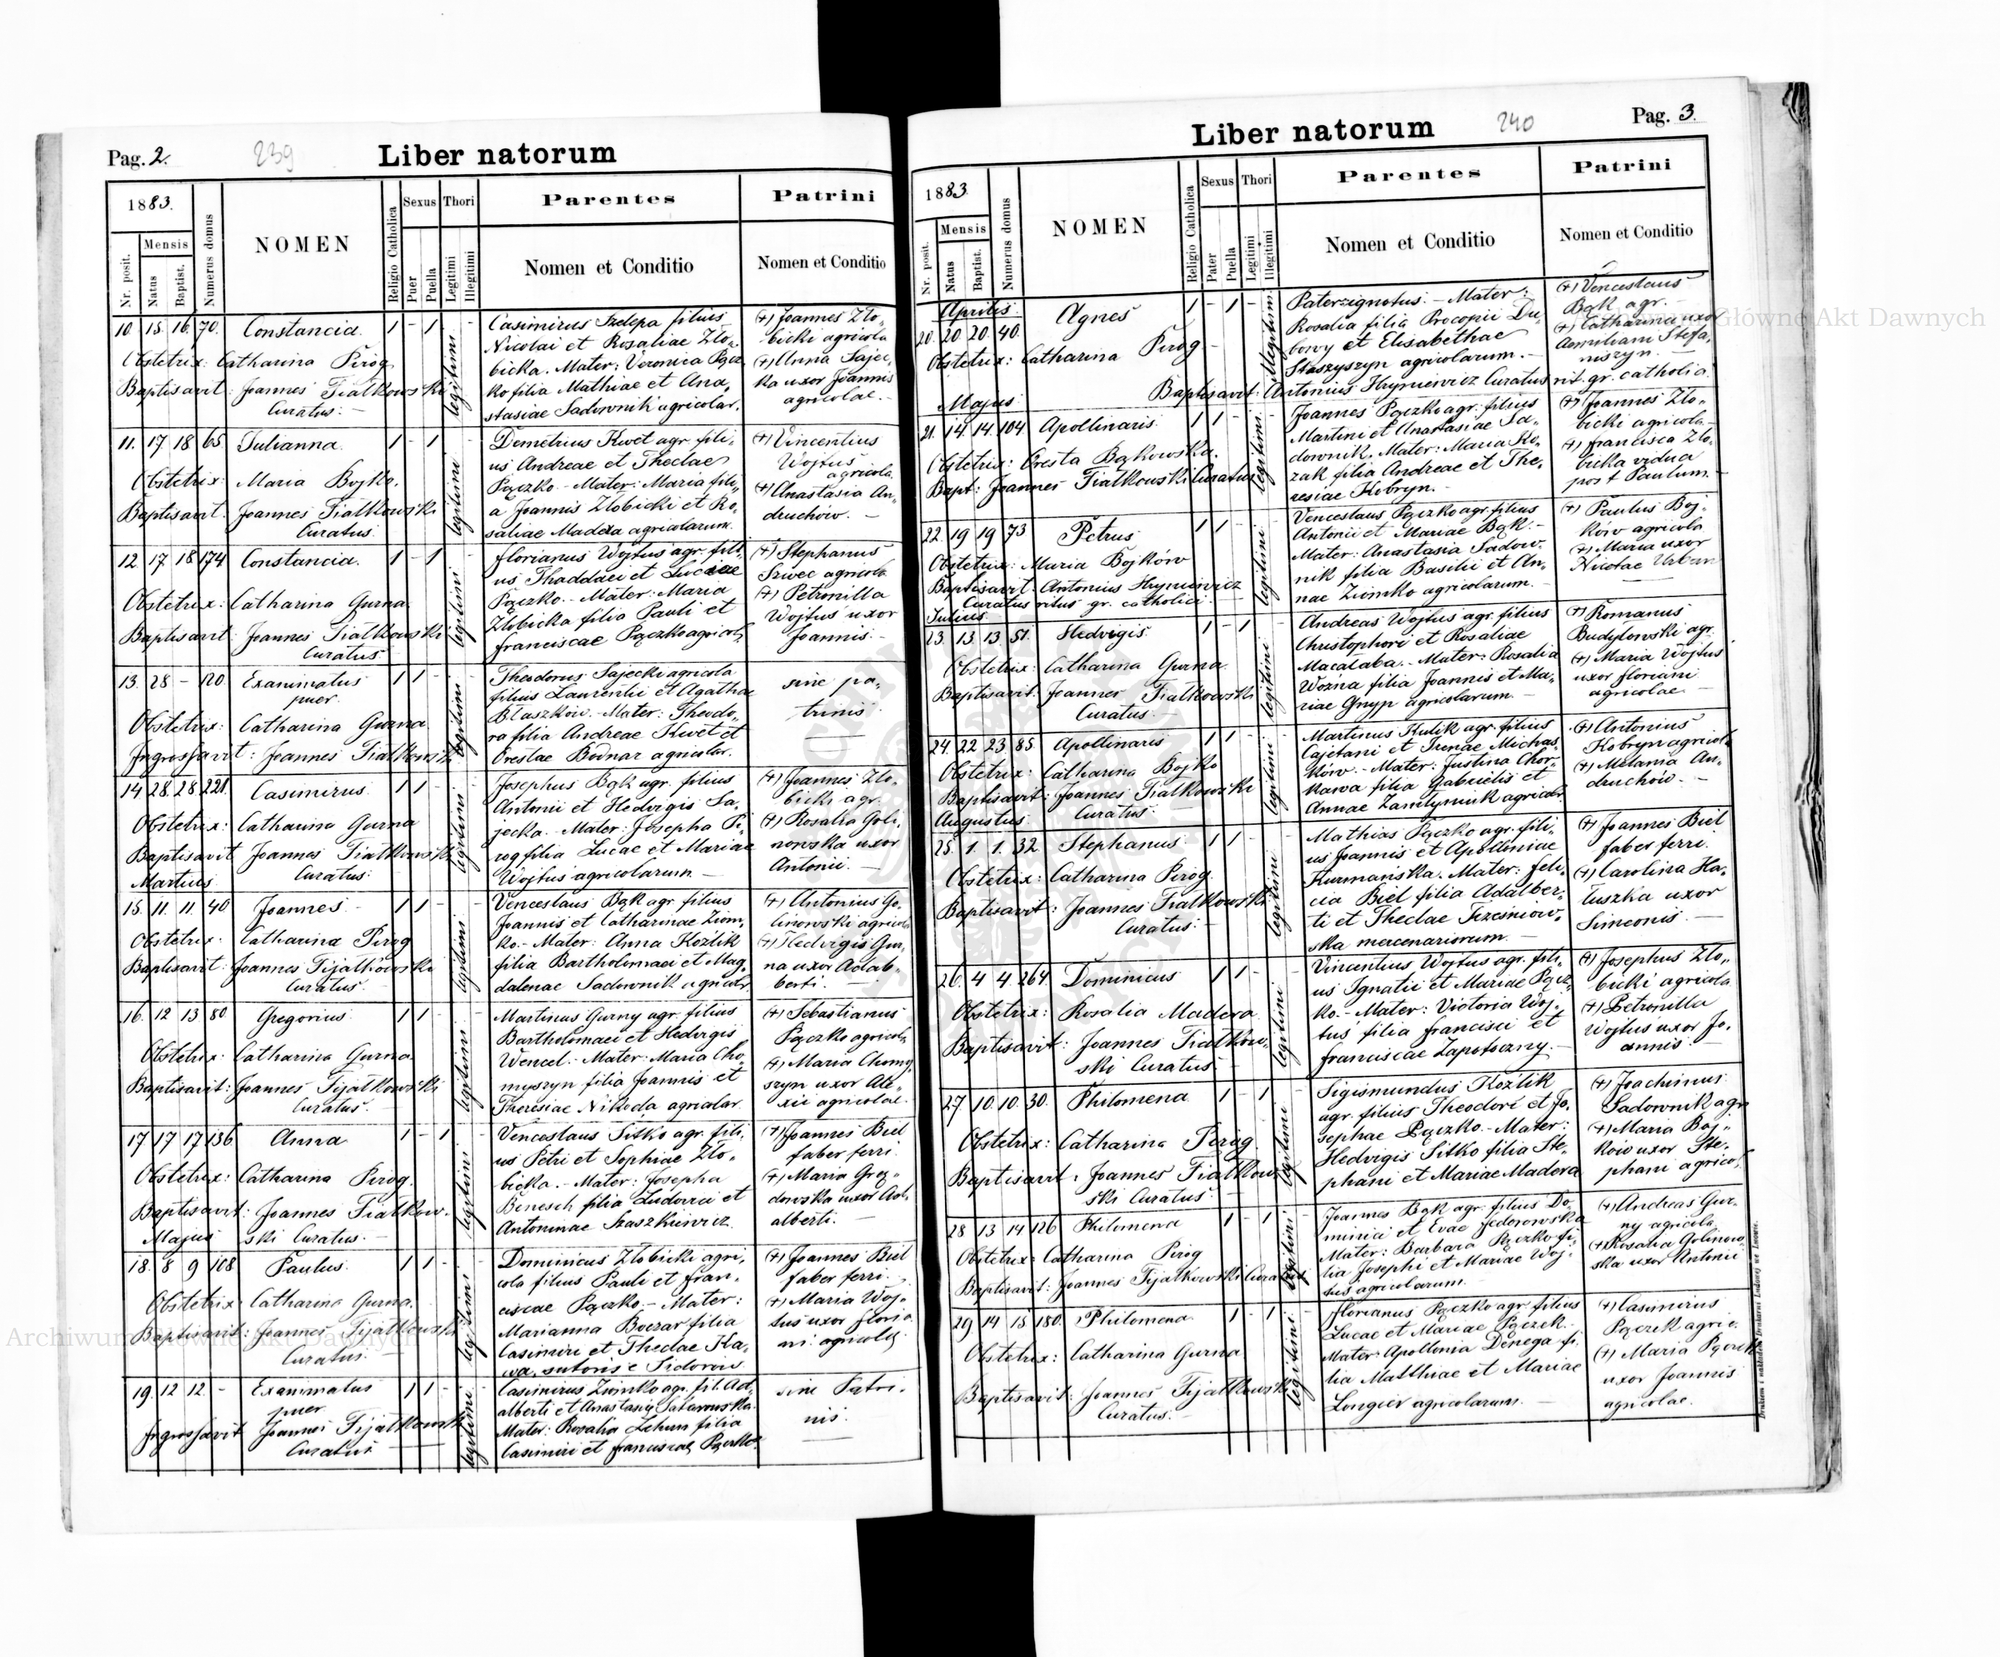 Pag. 2.
239
Liber natorum
1883.
Nr. posit.
Mensis
Natus
Baptist.
Numerus domus
NOMEN
Religio Catholica
Sexus
Puer
Puella
Thori
Legitimi
Illegitimi
Parentes
Nomen et Conditio
Patrini
Nomen et Conditio
10. 15. 16. 70. Constancia. 1 - 1 -
Obstetrix: Catharina Pirog
Baptisavit: Joannes Fialkowski
Curatus. -
legitimi
Casimirus Szelepa filius
Nicolai et Rosaliae Zło-
bicka. Mater: Veronica Pącz-
ko filia Mathiae et Ana-
stasiae Sadownik agricolar.
(+) Joannes Zło-
bicki agricola
(+) Anna Sajec-
ka uxor Joannis
agricolae. -
11. 17. 18. 65 Julianna. 1 - 1 -
Obstetrix: Maria Bojko.
Baptisavit. Joannes Fialkowski
Curatus.
legitimi
Demetrius Kwet agr. fili-
us Andreae et Theclae
Pączko. - Mater: Maria fili-
a Joannis Złobicki et Ro-
saliae Madera agricolarum.
(+) Vincentius
Wojtus
agricola
(+) Anastasia An-
druchów. -
12. 17. 18. 174 Constancia. 1 - 1 -
Obstetrix: Catharina Gurna
Baptisavit: Joannes Fialkowski
Curatus
legitimi
Florianus Wojtus agr. fili-
us Thaddaei et Luciae
Pączko. - Mater: Maria
Złobicka filia Pauli et
Franciscae Pączko agricol.
(+) Stephanus
Szwec agricola
(+) Petronilla
Wojtus uxor
Joannis. -
13. 28 - 120. Exanimatus 1 1 - -
puer.
Obstetrix: Catharina Gurna
Ingrossavit: Joannes Fialkowski
legitimi
Theodorus Sajecki agricola
filius Laurentii et Agathae
Błaszków. - Mater: Theodo-
ra filia Andreae Kwet et
Orestae Bodnar agricolar.
sine pa-
trinis.
14 28. 28 221. Casimirus. 1 1 - -
Obstetrix: Catharina Gurna
Baptisavit Joannes Fialkowski
Martius Curatus.
legitimi
Josephus Bąk agr. filius
Antonii et Hedvigis Sa-
jecka. - Mater: Josepha Pi-
rog filia Lucae et Mariae
Wojtus agricolarum. -
(+) Joannes Zło-
bicki agr.
(+) Rosalia Goli-
nowska uxor
Antonii. -
15. 11. 11. 40 Joannes. 1 1 - -
Obstetrix: Catharina Pirog
Baptisavit: Joannes Fijałkowski
Curatus. -
legitimi
Venceslaus Bąk agr. filius
Joannis et Catharinae Ziom-
ko. - Mater: Anna Koźlik
filia Bartholomaei et Mag-
dalenae Sadownik agricolar.
(+) Antonius Go-
linowski agricola
(+) Hedvigis Gur-
na uxor Adal-
berti. -
16. 12 13 80. Gregorius 1 1 - -
Obstetrix: Catharina Gurna
Baptisavit: Joannes Fijałkowski
Curatus. -
legitimi
Martinus Gurny agr. filius
Bartholomaei et Hedvigis
Wencel. - Mater: Maria Cho-
myszyn filia Joannis et
Theresiae Nikoda agricolar
(+) Sebastianus
Pączko agricola
(+) Maria Chomy-
szyn uxor Ale-
xii agricolae.
17 17 17 136 Anna 1 - 1 -
Obstetrix: Catharina Pirog.
Baptisavit: Joannes Fialkow-
Majus ski Curatus. -
legitimi
Venceslaus Sitko agr. fili-
us Petri et Sophiae Zło-
bicka. - Mater: Josepha
Benesch filia Ludovici et
Antoninae Staszkiewicz.
(+) Joannes Biel
faber ferri.
(+) Maria Groz-
dowska uxor Ad-
alberti. -
18. 8 9 108 Paulus. 1 1 - -
Obstetrix: Catharina Gurna.
Baptisavit: Joannes Fijałkowski
Curatus.
legitimi
Dominicus Złobicki agri-
cola filius Pauli et Fran-
ciscae Pączko. - Mater:
Marianna Boczar filia
Casimiri et Theclae Ka-
wa, sutoris e Fidorow.
(+) Joannes Biel
faber ferri.
(+) Maria Woj-
tus uxor Floria-
ni agricolæ
19. 12 12. - Exanimatus 1 1 - -
puer
Ingrossavit Joannes Fijałkowski
Curatus
legitimi
Casimirus Ziomko agr. fil. Ad-
alberti et Anastasiæ Sałamaska.
Mater: Rosalia Lehun filia
Casimiri et Franciscae Pączko.
sine Patri-
nis.
Pag. 3.
240
Liber natorum
1883.
Nr. posit.
Mensis
Natus
Baptist.
Numerus domus
NOMEN
Religio Catholica
Sexus
Pater
Puella
Thori
Legitimi
Illegitimi
Parentes
Nomen et Conditio
Patrini
Nomen et Conditio
Aprilis.
20. 20. 20. 40. Agnes 1 - 1 -
Obstetrix: Catharina Pirog
illegitimi
Pater: ignotus. - Mater:
Rosalia filia Procopii Du-
bowy et Elisabethae
Staszyszyn agricolarum. -
(+) Venceslaus
Bąk agr. -
(+) Catharina uxor
Aemiliani Stefa-
niszyn. -
Baptisavit: Antonius Hryniewicz Curatus rit. gr. catholici.
Majus
21. 14. 14. 104. Apollinaris. 1 1 - -
Obstetrix: Oresta Bąkowska.
Bapt: Joannes Fialkowski Curatus
legitimi
Joannes Pączko agr. filius
Martini et Anastasiae Sa-
downik. Mater: Maria Ko-
zak filia Andreae et The-
resiae Kobryn. -
(+) Joannes Zło-
bicki agricola -
(+) Francisca Zło-
bicka vidua
post Paulum. -
22. 19 19 73 Petrus 1 1 - -
Obstetrix: Maria Bojków
Baptisavit. Antonius Hryniewicz
Curatus ritus gr. catholici. -
legitimi
Venceslaus Pączko agr. filius
Antonii et Mariae Bąk. -
Mater: Anastasia Sadow-
nik filia Basilii et An-
nae Ziomko agricolarum. -
(+) Paulus Boj-
ków agricola
(+) Maria uxor
Nicolae Urban
Julius.
23. 13 13 51. Hedvigis. 1 - 1 -
Obstetrix: Catharina Gurna.
Baptisavit. Joannes Fialkowski
Curatus. -
legitimi
Andreas Wojtus agr. filius
Christophori et Rosaliae
Macałaba. - Mater: Rosalia
Wozna filia Joannis et Ma-
riae Gnyp agricolarum. -
(+) Romanus
Budyłowski agr.
(+) Maria Wojtus
uxor Floriani
agricolae. -
24. 22 23 85. Apollinaris 1 1 - -
Obstetrix: Catharina Bojko
Baptisavit: Joannes Fialkowski
Augustus Curatus. -
legitimi
Martinus Kulik agr. filius
Cajetani et Irenae Michas-
ków. - Mater: Justina Chor-
kawa filia Gabrielis et
Annae Zamtyniuk agricolar.
(+) Antonius
Kobryn agricola
(+) Melania An-
druchów. -
25. 1. 1. 32. Stephanus 1 1 - -
Obstetrix: Catharina Pirog.
Baptisavit: Joannes Fialkowski
Curatus. -
legitimi
Mathias Pączko agr. fili-
us Joannis et Apolliniae
Kurmańska. Mater: Feli-
cia Biel filia Adalber-
ti et Theclae Trzesniow-
ska mercenariorum. -
(+) Joannes Biel
faber ferri.
(+) Carolina Ha-
łuszka uxor
Simeonis. -
26. 4 4. 264. Dominicus 1 1 - -
Obstetrix: Rosalia Madera
Baptisavit: Joannes Fialkow-
ski Curatus. -
legitimi
Vincentius Wojtus agr. fili-
us Ignatii et Mariae Pącz-
ko. - Mater: Victoria Woj-
tus filia Francisci et
Franciscae Zapotoczny. -
(+) Josephus Zło-
bicki agricola
(+) Petronilla
Wojtus uxor Jo-
annis. -
27. 10. 10. 30. Philomena 1 - 1 -
Obstetrix: Catharina Pirog
Baptisavit. Joannes Fialkow-
ski Curatus. -
legitimi
Sigismundus Koźlik
agr. filius Theodori et Jo-
sephae Pączko. - Mater:
Hedvigis Sitko filia Ste-
phani et Mariae Madera
(+) Joachimus
Sadownik agr.
(+) Maria Boj-
ków uxor Ste-
phani agricol.
28 13 14 126 Philomena 1 - 1 -
Obstetrix: Catharina Pirog
Baptisavit: Joannes Fijałkowski Curatus
legitimi
Joannes Bąk agr. filius Do-
minici et Evae Fedorowska
Mater: Barbara Pączko fi-
lia Josephi et Mariae Woj-
tus agricolarum. -
(+) Andreas Gur-
ny agricola
(+) Rosalia Golinow-
ska uxor Antonii
29 14 15 180. Philomena. 1 - 1 -
Obstetrix: Catharina Gurna
Baptisavit: Joannes Fijałkowski
Curatus. -
legitimi
Florianus Pączko agr. filius
Lucae et Mariae Pączek. -
Mater: Apollonia Denega fi-
lia Matthiae et Mariae
Longier agricolarum. -
(+) Casimirus
Pączek agric.
(+) Maria Pączek
uxor Joannis
agricolae.
Drukiem i nakładem Drukarni Ludowej we Lwowie.
Archiwum Główne Akt Dawnych
Główne Akt Dawnych